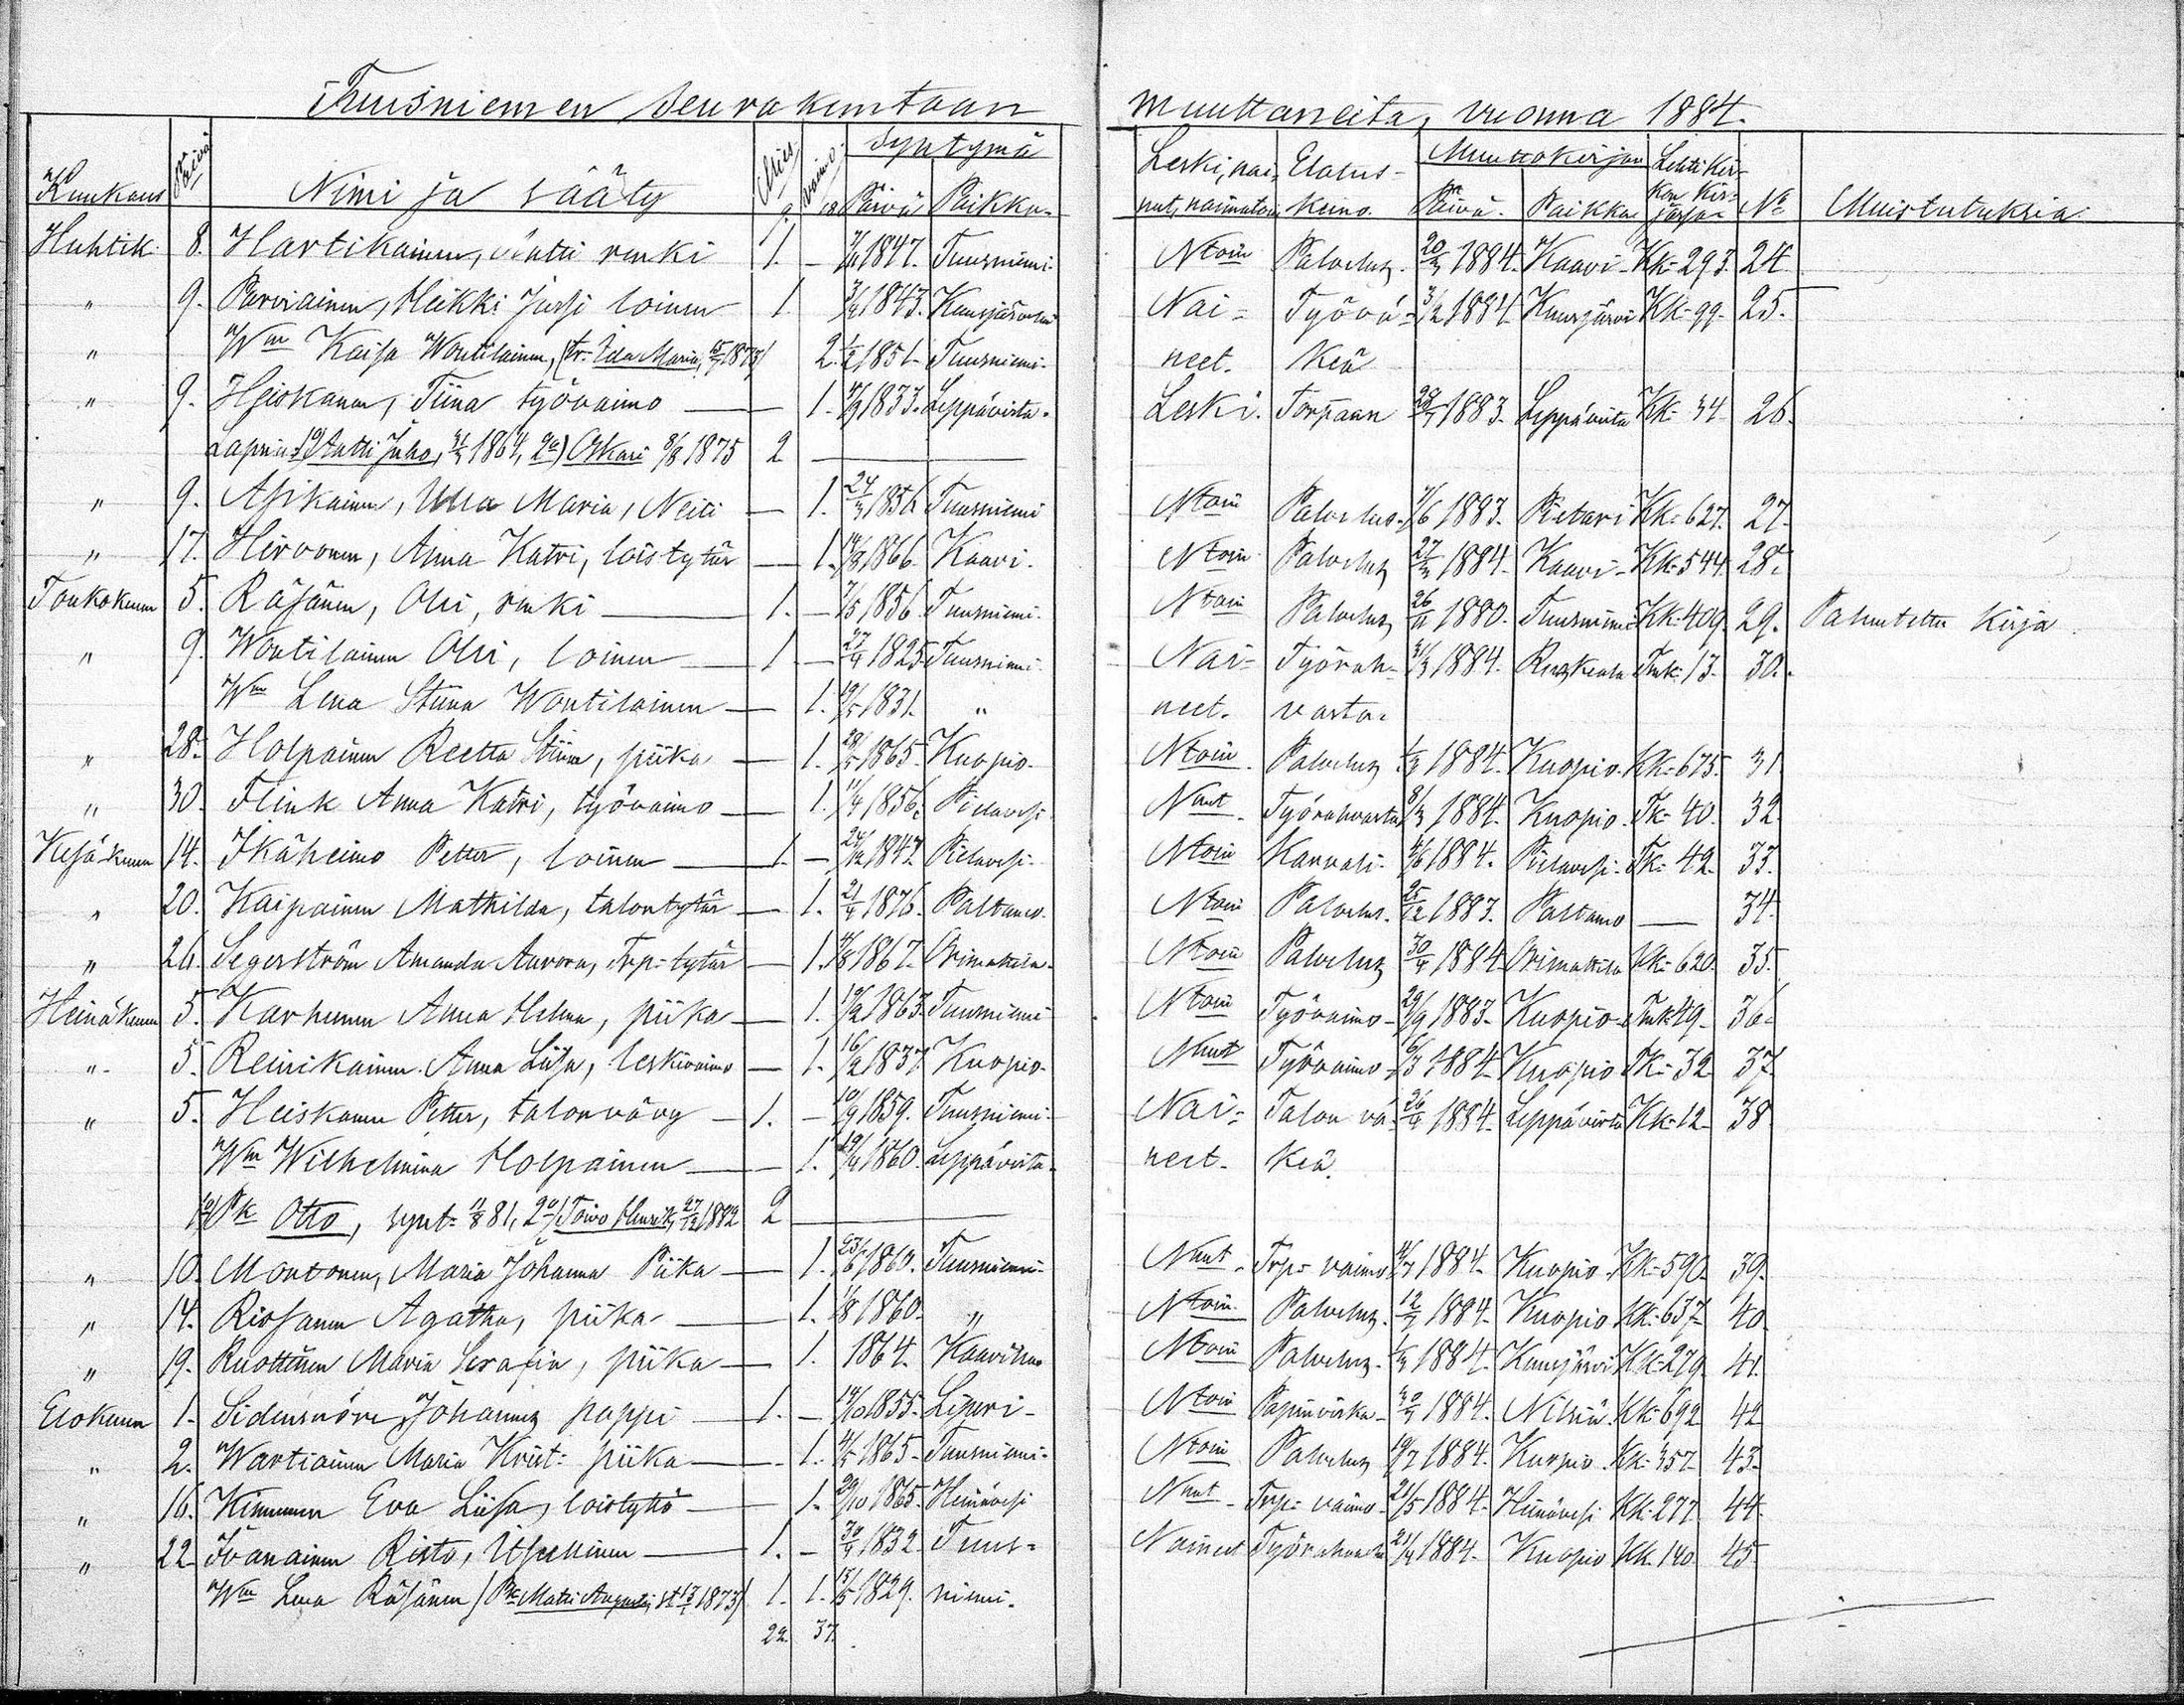 Tuusniemen seurakuntaan muuttaneita, vuonna 1884.
Kuukaus Päivä Nimi ja sääty Mies vaimo Syntymä Päivä Paikka Leski, nainut, naimaton Elatuskeino. Muuttokirjan Päivä. Paikka N:o Muistutuksia.
7. 18
Huhtik. 8. Hartikainen, renki 1. – 1847. Tuusniemi. Ntoin Palvelus. 20/3 1884. Kaavi Kk. 293. 24.
" 9. Parviainen, Heikki Jussi loinen 1. 1843. Nai- Työvä- 1884. Kuusjärvi Kk. 99. 25.
" Wm Kaisa Woutilainen, (tr. Ida Maria, 1873) 2. 1851. Tuusniemi. neet. keä
" 9. Heiskanen, Tiina työvaimo — 1. 1833. Leppävirta. Leski. Torpann 1883. Leppävirta Kk. 34. 26.
Lapsia 1o) Antti Juho, 1864, 2o) Oskari 8/8 1875 2 —
" 9. Asikainen, Ulla Maria, Neiti — 1. 1856. Tuusniemi Ntoin Palvelus. 1883. Pietari Kk. 627. 27.
" 17. Hirvonen, Anna Katri, loistytär — 1. 1866. Kaavi. Ntoin Palvelus 27/3 1884. Kaavi Kk. 544. 28.
Toukokuun 5. Räsänen, Olli, renki — 1. – 1856. Tuusniemi. Ntoin Palvelus 26/11 1880. Tuusniemi Kk. 409. 29. Palautettu kirja.
" 9. Woutilainen Olli, loinen — 1 – 27/4 1825 Tuusniemi. Nai- Työvah- 31/3 1884. Ruskeala Tmk. 13. 30.
Wm Lena Stiina Woutilainen — 1. 1831. " neet. vasta.
" 28. Holpainen Reetta Stiina, piika — 1. 1865. Kuopio. Ntoin. Palvelus 1884. Kuopio. Kk. 675. 31.
" 30. Flink Anna Katri, työvaimo — 1. 1856. Pielavesi. Nnut. Työvahvasta 8/3 1884. Kuopio. Tk. 40. 32.
Kesäkuun 14. Ikäheimo Petter, loinen — 1. – 24/12 1847. Pielavesi. Ntoin Karvali. 1884. Pielavesi. Tk. 42. 33.
" 20. Kaipainen Mathilda, talontytär — 1. 21/4 1876. Paltamo. Ntoin Palvelus. 25/12 1883. Paltamo — 34.
" 26. Segerström Amanda Aurora, Trp. tytär — 1. 1867. Orimattila. Ntoin Palvelus 30/4 1884. Orimattila Kk. 620. 35.
Heinäkuun 5. Karhunen Anna Helena, piika — 1. 1863. Tuusniemi Ntoin Työvaimo 29/9 1883. Kuopio Tmk. 49. 36.
" 5. Reinikainen Anna Liisa, leskivaimo — 1. 16/2 1837. Kuopio. Nnut Työvaimo 6/3 1884. Kuopio Tk. 32. 37.
" 5. Heiskanen Petter, talonvävy — 1. – 10/9 1859. Tuusniemi. Nai- Talon vä- 26/4 1884. Leppävirta Kk. 12. 38
Wm Wilhelmina Holpainen — 1. 1860. Leppävirta. neet. keä.
1o) Pk Otto, synt. 81, 2o) Toivo Henrik 27/12 1882 2 —
" 10. Montonen, Maria Johanna Piika — 1. 23/6 1860. Tuusniemi. Nnut. Trp. vaimo 1884. Kuopio. Kk. 590. 39.
" 14. Rissanen Agatha, piika — 1. 1860. " Ntoin Palvelus. 1884. Kuopio Kk. 637. 40.
" 19. Ruottinen Maria Serafia, piika — 1. 1864. Kaavilla Ntoin Palvelus. 1884. Kuusjärvi Kk. 279. 41.
Elokuun 1. Sidensnöre, Johannes pappi — 1. – 1855. Liperi. Ntoin Papinvirka. 1884. Nilsiä. Kk. 692 42
" 2. Wartiainen Maria Krist. piika — 1. 1865. Tuusniemi. Ntoin Palvelus 1884. Kuopio. Kk. 357. 43.
" 16. Kinnunen Eva Liisa, loistyttö — 1. 29/10 1865. Heinävesi Nnut. Trp. vaimo. 21/5 1884. Heinävesi Kk. 277. 44.
" 22. Risto, Itsellinen — 1. – 1832. Tuus- Nainut 21/4 1884. Kuopio Kk. 140. 45.
Wm Lena Räsänen (Pk Matti 1873) 1. 1. 1829. niemi.
22. 37.